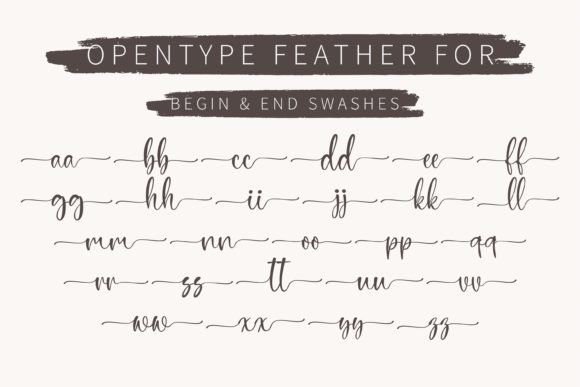 OPENTYPE FEATHER FOR
BEGIN & END SWASHES
aa bb cc dd ee ff
gg hh ii jj kk ll
mm nn oo pp qq
rr ss tt uu vv
ww xx yy zz